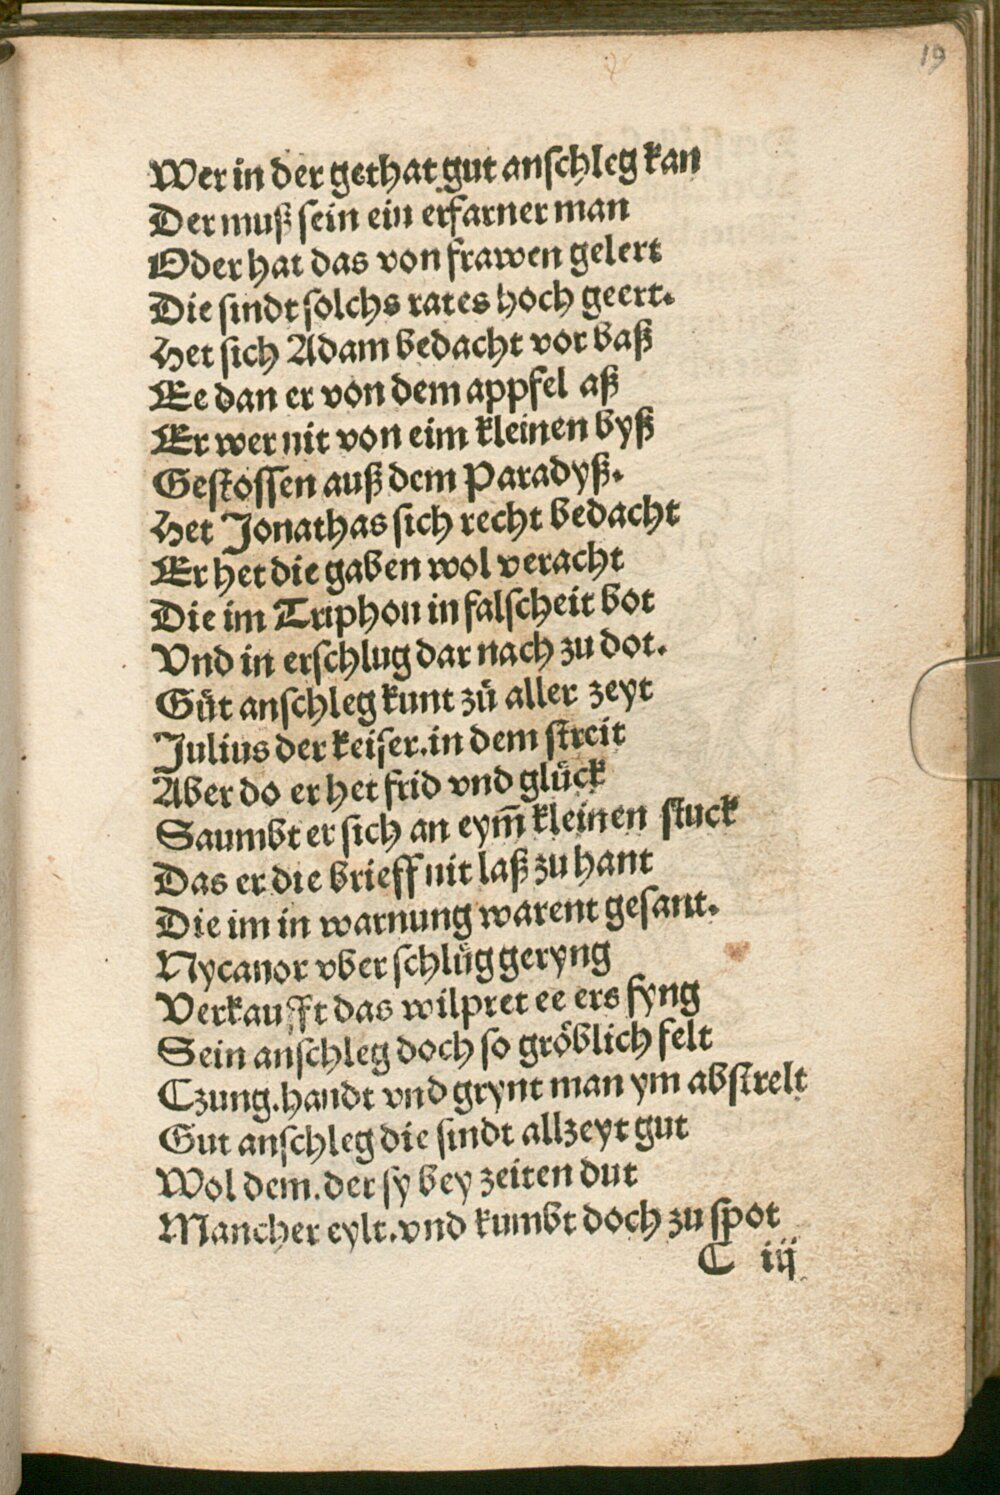 19
Wer in der gethat gut anschleg kan
Der muß sein ein erfarner man
Oder hat das von frawen gelert
Die sindt solchs rates hoch geert.
Het sich Adam bedacht vor baß
Ee dan er von dem appfel aß
Er wer nit von eim kleinen byß
Gestossen auß dem Paradyß.
Het Jonathas sich recht bedacht
Er het die gaben wol veracht
Die im Triphon in falscheit bot
Vnd in erschlug dar nach zu dot.
Gůt anschleg kunt zů aller zeyt
Julius der keiser.in dem streit
Aber do er het frid vnd glůck
Saumbt er sich an eym̃ kleinen stuck
Das er die brieff nit laß zu hant
Die im in warnung warent gesant.
Nycanor vber schlůg geryng
Verkaufft das wilpret ee ers fyng
Sein anschleg doch so gröblich felt
Czung.handt vnd grynt man ym abstrelt
Gut anschleg die sindt allzeyt gut
Wol dem.der sy bey zeiten dut
Mancher eylt.vnd kumbt doch zu spot
C iij